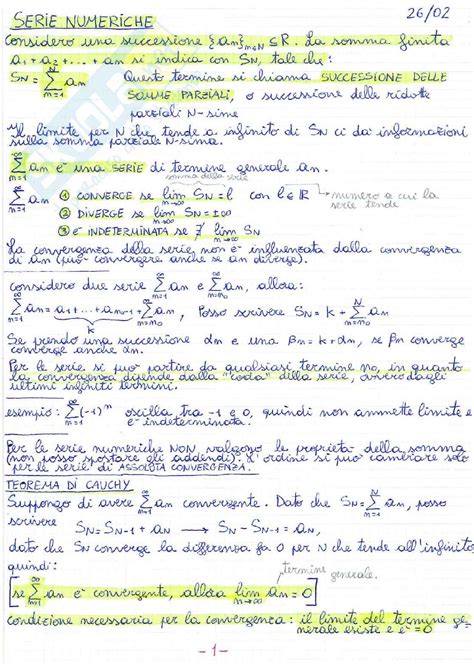 SERIE NUMERICHE
26/02
Considero una successione {an}n∈N ⊆ R. La somma finita
a1 + a2 + ... + an si indica con SN, tale che:
SN = Σ_{n=1}^{N} an Questo termine si chiama SUCCESSIONE DELLE
SOMME PARZIALI, o successione delle ridotte
parziali N-sime
Il limite per N che tende a infinito di SN ci dà informazioni
sulla somma parziale N-sima.
Σ_{n=1}^{∞} an è una SERIE di termine generale an.
somma della serie
Σ_{n=1}^{∞} an ① CONVERGE se lim_{n→∞} SN = l con l ∈ R → numero a cui la
serie tende
② DIVERGE se lim_{n→∞} SN = ±∞
③ è INDETERMINATA se ∄ lim_{n→∞} SN
La convergenza della serie non è influenzata dalla convergenza
di an (può convergere anche se an diverge).
considero due serie Σ_{n=1}^{∞} an e Σ_{n=n0}^{∞} an, allora:
Σ_{n=1}^{∞} an = a1 + ... + an0-1 + Σ_{n=n0}^{∞} an, Posso scrivere SN = k + Σ_{n=n0}^{N} an
k
Se prendo una successione αn e una βn = k + αn, se βn converge
converge anche αn.
Per le serie si può partire da qualsiasi termine n0, in quanto
la convergenza dipende dalla "coda" della serie, ovvero dagli
ultimi infiniti termini.
esempio: Σ_{n=1}^{∞} (-1)^n oscilla tra -1 e 0, quindi non ammette limite e
è indeterminata.
Per le serie numeriche NON valgono le proprietà della somma
(non posso spostare gli addendi). L'ordine si può cambiare solo
per le serie di ASSOLUTA CONVERGENZA.
TEOREMA DI CAUCHY
Suppongo di avere Σ_{n=1}^{∞} an convergente. Dato che SN = Σ_{n=1}^{N} an, posso
scrivere
SN = SN-1 + an → SN - SN-1 = an
dato che SN converge la differenza fa 0 per N che tende all'infinito
quindi:
termine generale.
[se Σ_{n=1}^{∞} an è convergente, allora lim_{n→∞} an = 0]
Condizione necessaria per la convergenza: il limite del termine ge-
nerale esiste e è = 0
- 1 -